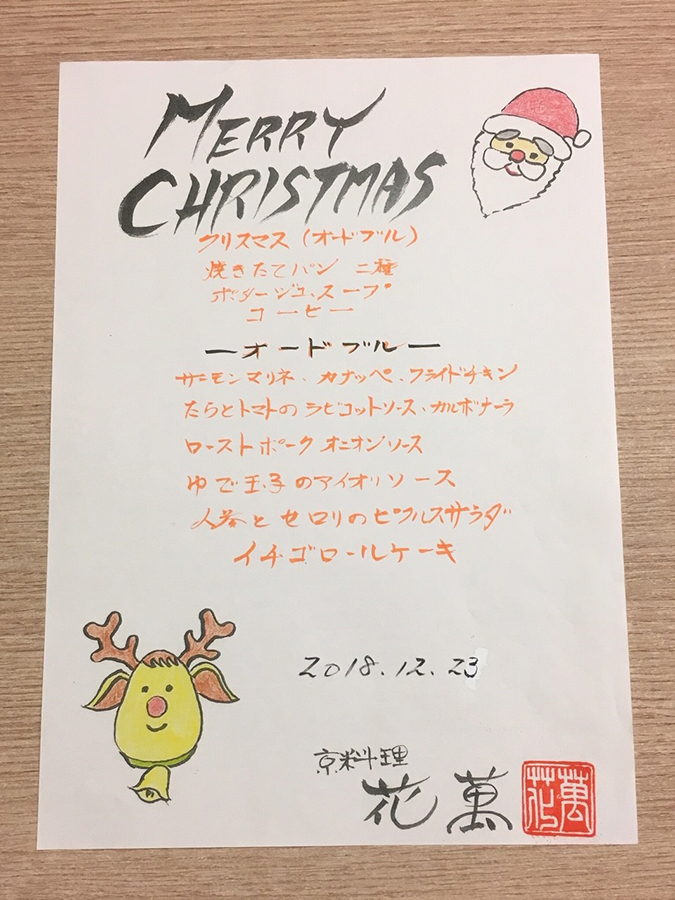 MERRY
CHRISTMAS
クリスマス (オードブル)
焼きたてパン 二種
ポタージュ、スープ
コーヒー
ーオードブルー
サーモンマリネ、カナッペ、フライドチキン
たらとトマトの ラビコットソース、カルボナーラ
ローストポーク オニオンソース
ゆで玉子のアイオリソース
人参とセロリのピクルスサラダ
イチゴロールケーキ
2018.12.23
京料理
花萬
花萬